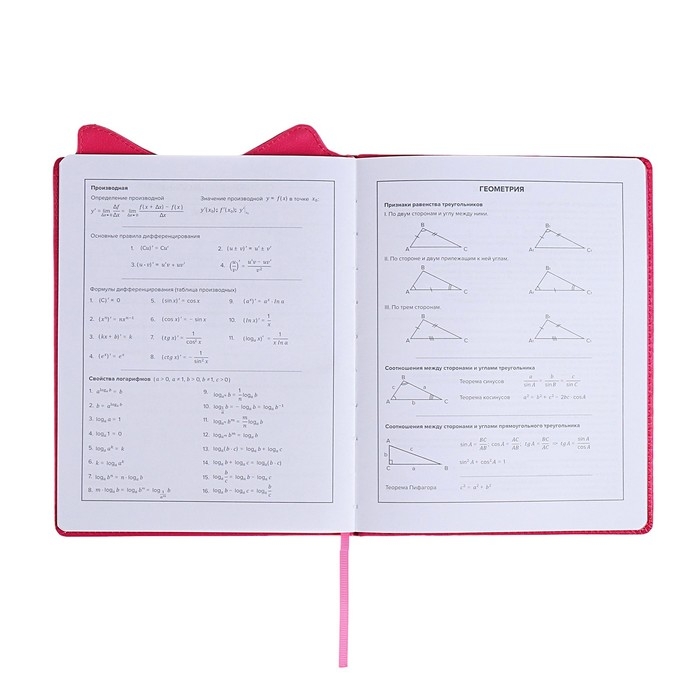 Производная
Определение производной
y' = lim Δf/Δx = lim f(x + Δx) − f(x)/Δx
Значение производной y = f(x) в точке x₀:
y'(x₀); f'(x₀);
Основные правила дифференцирования
1. (Cu)' = Cu'
2. (u ± v)' = u' ± v'
3. (u · v)' = u'v + uv'
4. (u/v)' = u'v − uv'/v²
Формулы дифференцирования (таблица производных)
1. (C)' = 0
2. (xⁿ)' = nxⁿ⁻¹
3. (kx + b)' = k
4. (eˣ)' = eˣ
5. (sin x)' = cos x
6. (cos x)' = − sin x
7. (tg x)' = 1/cos² x
8. (ctg x)' = − 1/sin² x
9. (aˣ)' = aˣ · ln a
10. (ln x)' = 1/x
11. (logₐ x)' = 1/x ln a
Свойства логарифмов (a > 0, a ≠ 1, b > 0, b ≠ 1, c > 0)
1.
2.
3. logₐ a = 1
4. logₐ 1 = 0
5. logₐ aᵏ = k
6. k = logₐ aᵏ
7. logₐ bⁿ = n · logₐ b
8.
9.
10.
11.
12.
13. logₐ(b · c) = logₐ b + logₐ c
14. logₐ b + logₐ c = logₐ(b · c)
15. logₐ b/c = logₐ b − logₐ c
16. logₐ b − logₐ c = logₐ b/c
ГЕОМЕТРИЯ
Признаки равенства треугольников
I. По двум сторонам и углу между ними.
B
A C
B₁
A₁ C₁
II. По стороне и двум прилежащим к ней углам.
B
A C
B₁
A₁ C₁
III. По трем сторонам.
B
A C
B₁
A₁ C₁
Соотношения между сторонами и углами треугольника
B
c a
A b C
Теорема синусов a/sin A = b/sin B = c/sin C
Теорема косинусов a² = b² + c² − 2bc · cos A
Соотношения между сторонами и углами прямоугольного треугольника
A
b c
C a B
sin A = BC/AB; cos A = AC/AB; tg A = BC/AC ⇒ tg A = sin A/cos A
sin² A + cos² A = 1
Теорема Пифагора c² = a² + b²